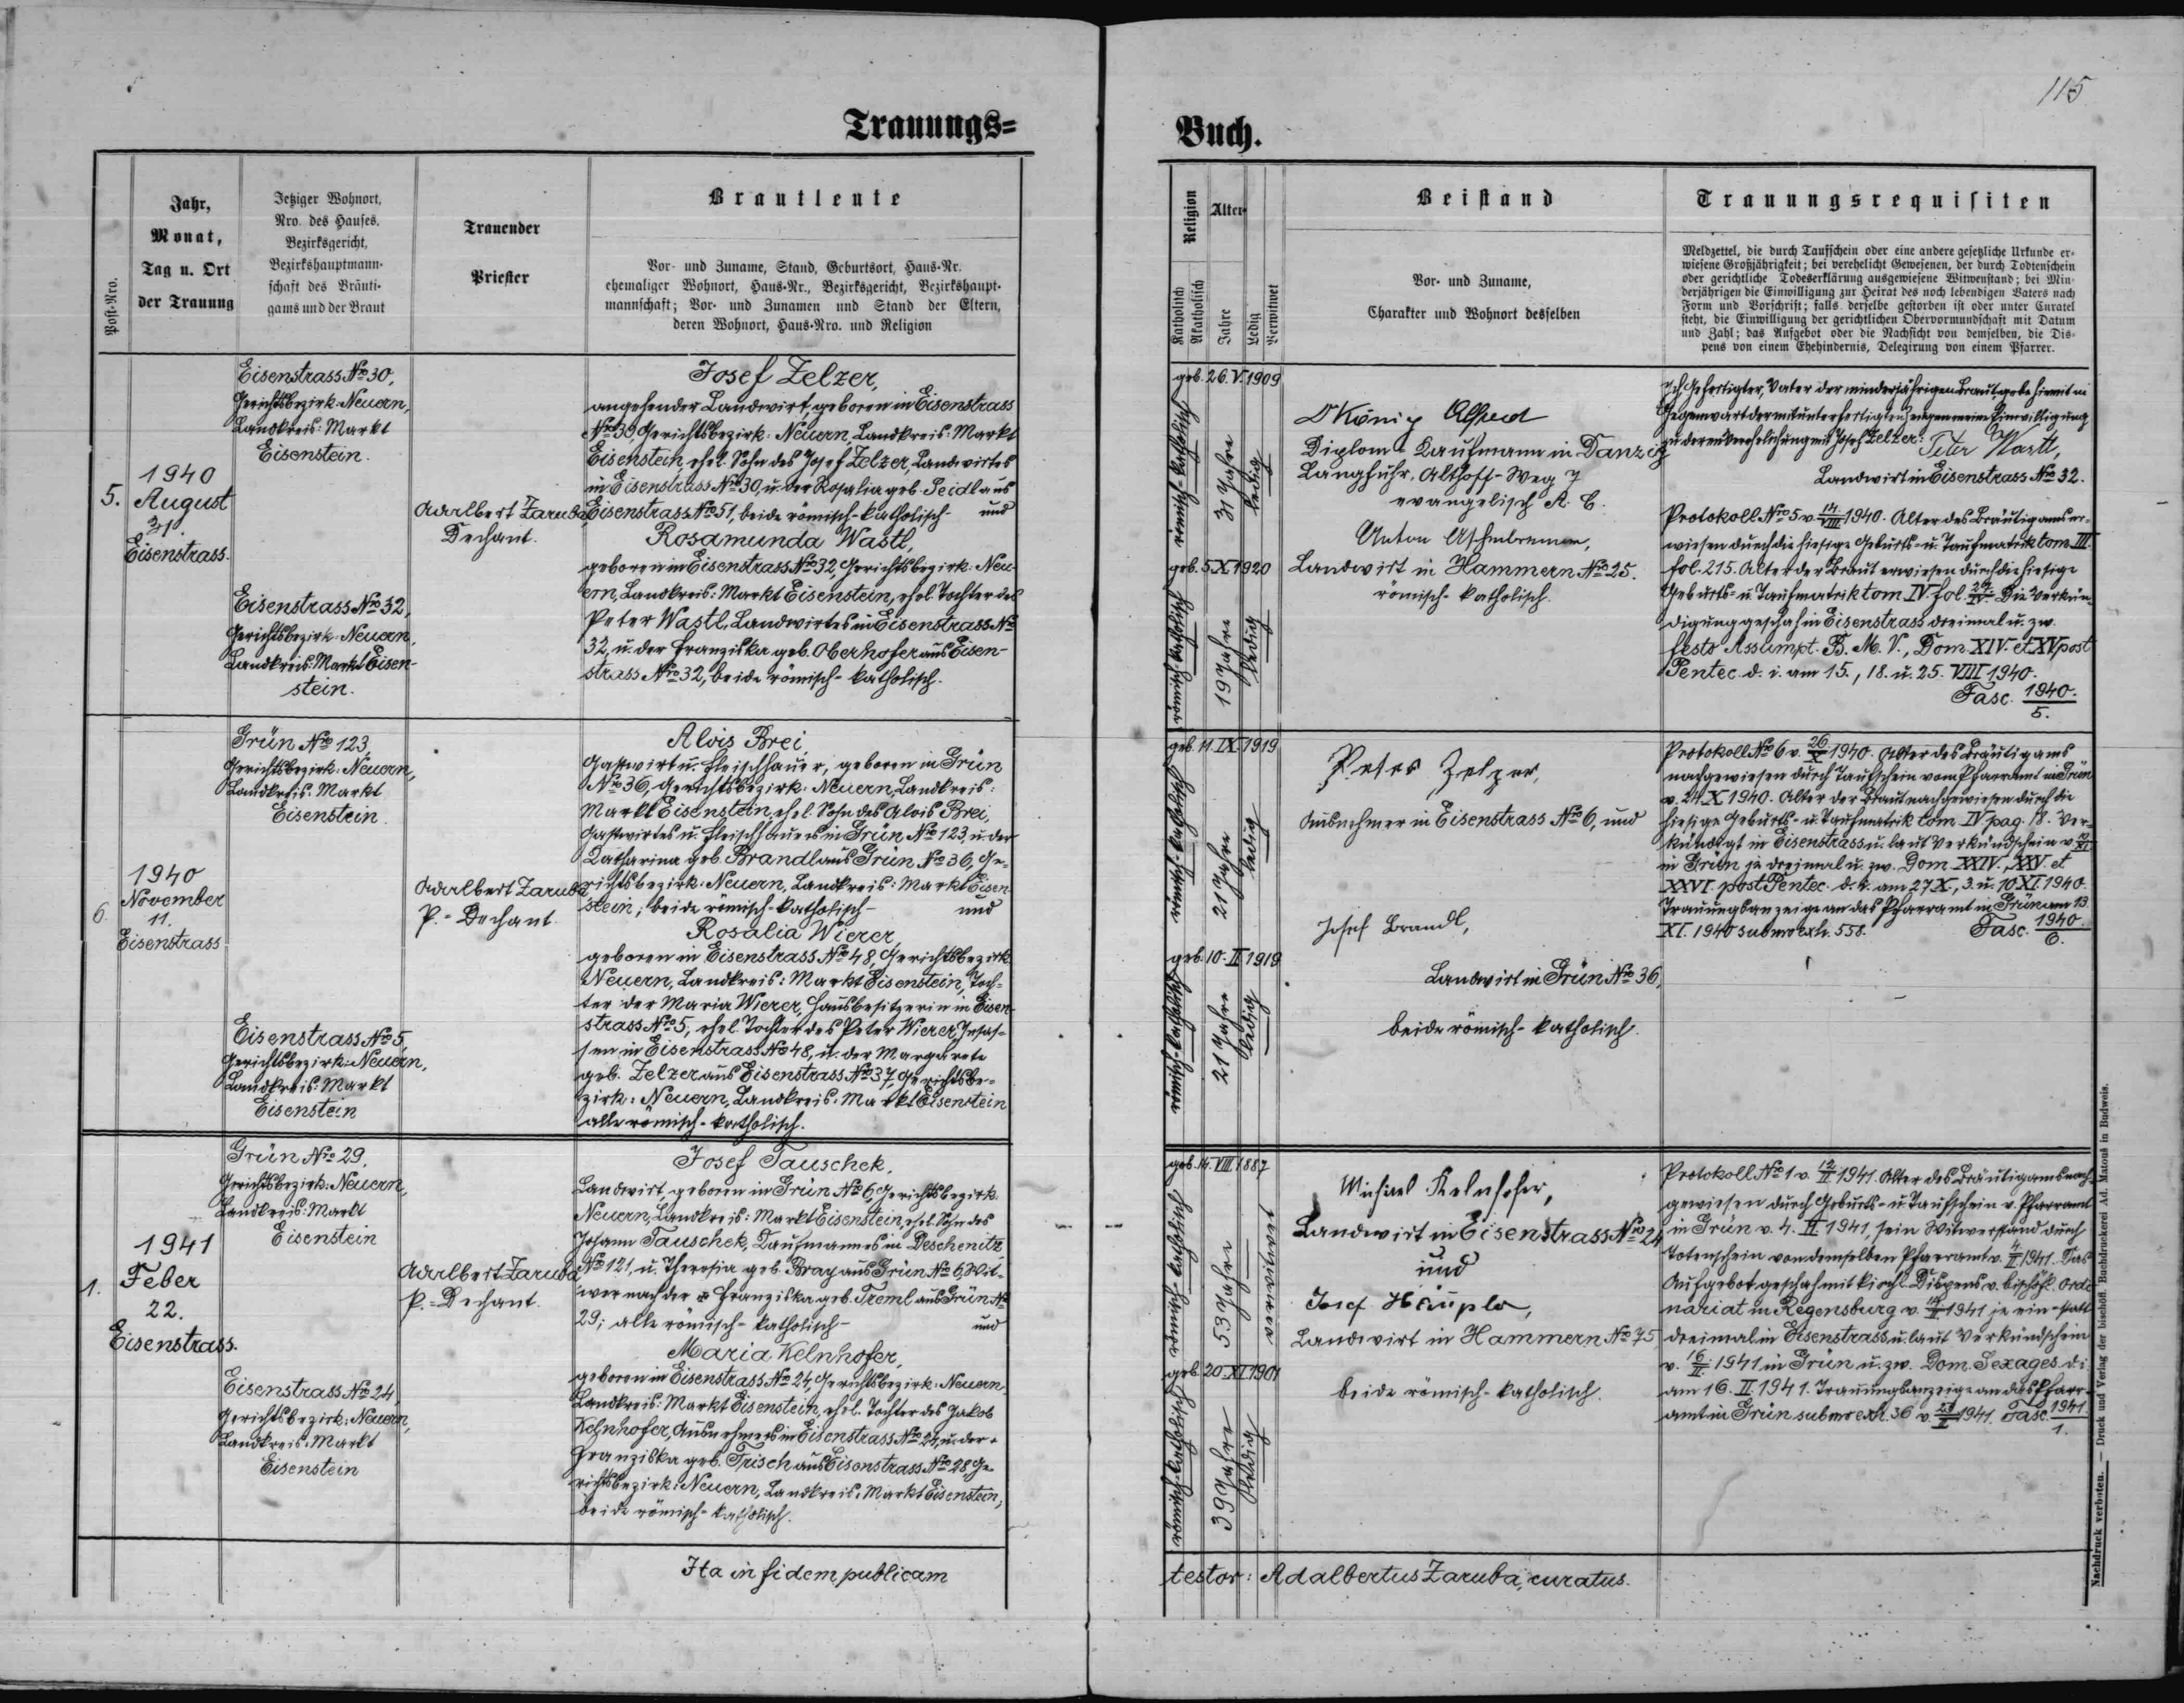 115
Trauungs=
Buch.
Post-Nro.
Jahr,
Monat,
Tag u. Ort
der Trauung
Jetziger Wohnort,
Nro. des Hauses.
Bezirksgericht,
Bezirkshauptmann-
schaft des Bräuti-
gams und der Braut
Trauender
Priester
Brautleute
Vor- und Zuname, Stand, Geburtsort, Haus-Nr.
ehemaliger Wohnort, Haus-Nr., Bezirksgericht, Bezirkshaupt-
mannschaft; Vor- und Zunamen und Stand der Eltern,
deren Wohnort, Haus-Nro. und Religion
Religion
Katholisch
Akatholisch
Alter
Jahre
Ledig
Verwitwet
Beistand
Vor- und Zuname,
Charakter und Wohnort desselben
Trauungsrequisiten
Meldzettel, die durch Taufschein oder eine andere gesetzliche Urkunde er-
wiesene Großjährigkeit; bei verehelicht Gewesenen, der durch Todtenschein
oder gerichtliche Todeserklärung ausgewiesene Witwenstand; bei Min-
derjährigen die Einwilligung zur Heirat des noch lebendigen Vaters nach
Form und Vorschrift; falls derselbe gestorben ist oder unter Curatel
steht, die Einwilligung der gerichtlichen Obervormundschaft mit Datum
und Zahl; das Aufgebot oder die Nachsicht von demselben, die Dis-
pens von einem Ehehindernis, Delegirung von einem Pfarrer.
5.
1940
August
31.
Eisenstrass.
Eisenstrass Nro 30,
Gerichtsbezirk: Neuern,
Landkreis: Markt
Eisenstein.
Eisenstrass Nro 32,
Gerichtsbezirk: Neuern,
Landkreis: Markt Eisen-
stein.
Adalbert Zaruba,
Dechant.
Josef Zelzer,
angehender Landwirt, geboren in Eisenstrass
Nro 30, Gerichtsbezirk: Neuern, Landkreis: Markt
Eisenstein, ehel. Sohn des Josef Zelzer, Landwirtes
in Eisenstrass Nro 30, u. der Rosalia geb. Seidl aus
Eisenstrass Nro 51, beide römisch-katholisch- und
Rosamunda Wastl,
geboren in Eisenstrass Nro 32, Gerichtsbezirk: Neu-
ern, Landkreis: Markt Eisenstein, ehel. Tochter des
Peter Wastl, Landwirtes in Eisenstrass Nro
32, u. der Franziska geb. Oberhofer aus Eisen-
strass Nro 32, beide römisch-katholisch.
geb. 26. V. 1909
römisch-katholisch
31 Jahre
ledig
geb. 5. X. 1920
römisch-katholisch
19 Jahre
ledig
Dr König Alfred
Diplom-Kaufmann in Danzig
Langfuhr, Althoff-Weg 7
evangelisch A. C.
Anton Aschenbrenner,
Landwirt in Hammern Nro 25.
römisch-katholisch.
Ich Gefertigter, Vater der minderjährigen Braut gebe hiermit in
Gegenwart der mitunterfertigten Zeugen meine Einwilligung
zu deren Verehelichung mit Josef Zelzer: Peter Wastl,
Landwirt in Eisenstrass Nro 32.
Protokoll Nro 5 v. 14./VIII. 1940. Alter des Bräutigams er-
wiesen durch die hiesige Geburts- u. Taufmatrik tom. III.
fol. 215. Alter der Braut erwiesen durch die hiesige
Geburts- u. Taufmatrik tom. IV. fol. Die Verkün-
digung geschah in Eisenstrass dreimal u. zw.
festo Assumpt. B. M. V., Dom. XIV. et XV post
Pentec. d. i. am 15., 18. u. 25. VIII 1940.
Fasc. 1940./5.
6.
1940
November
11.
Eisenstrass
Grün Nro 123,
Gerichtsbezirk: Neuern,
Landkreis: Markt
Eisenstein.
Eisenstrass Nro 5,
Gerichtsbezirk: Neuern,
Landkreis: Markt
Eisenstein
Adalbert Zaruba
P.-Dechant.
Alois Brei,
Gastwirt u. Fleischhauer, geboren in Grün
Nro 36, Gerichtsbezirk: Neuern, Landkreis:
Markt Eisenstein, ehel. Sohn des Alois Brei,
Gastwirtes u. Fleischhauers in Grün Nro 123, u. der
Katharina geb. Brandl aus Grün Nro 36, Ge-
richtsbezirk: Neuern, Landkreis: Markt Eisen-
stein; beide römisch-katholisch- und
Rosalia Wierer
geboren in Eisenstrass Nro 48, Gerichtsbezirk
Neuern, Landkreis: Markt Eisenstein, Toch-
ter der Maria Wierer, Hausbesitzerin in Eisen-
strass Nro 5, ehel. Tochter des Peter Wierer, Insas-
sen in Eisenstrass Nro 48, u. der Margarete
geb. Zelzer aus Eisenstrass Nro 37, Gerichtsbe-
zirk: Neuern, Landkreis: Markt Eisenstein
alle römisch-katholisch.
geb. 11. IX. 1919
römisch-katholisch
21 Jahre
ledig
geb. 10. II 1919
römisch-katholisch
21 Jahre
ledig
Peter Zelzer,
Ausnehmer in Eisenstrass Nro 6, und
Josef Brandl,
Landwirt in Grün Nro 36,
beide römisch-katholisch.
Protokoll Nro 6 v. 26./X. 1940. Alter des Bräutigams
nachgewiesen durch Taufschein vom Pfarramt in Grün
v. 24. X 1940. Alter der Braut nachgewiesen durch die
hiesige Geburts- u. Taufmatrik tom. IV pag. 18. Ver-
kündigt in Eisenstrass u. laut Verkündschein v. 10/XI
in Grün je dreimal u. zw. Dom. XXIV., XXV. et
XXVI. post Pentec. d. i. am 27 X., 3. u. 10 XI. 1940.
Trauungsanzeige an das Pfarramt in Grün am 13.
XI. 1940 sub nro exh. 558. Fasc. 1940./6.
1.
1941
Feber
22.
Eisenstrass.
Grün Nro 29,
Gerichtsbezirk: Neuern,
Landkreis: Markt
Eisenstein
Eisenstrass Nro 24,
Gerichtsbezirk: Neuern,
Landkreis: Markt
Eisenstein
Adalbert Zaruba
P.-Dechant.
Josef Tauschek,
Landwirt, geboren in Grün Nro 6, Gerichtsbezirk
Neuern, Landkreis: Markt Eisenstein, ehel. Sohn des
Johann Tauschek, Kaufmannes in Deschenitz
Nro 121, u. Theresia geb. Bray aus Grün Nro 6, Wit-
wer nach der Franziska geb. Treml aus Grün Nro
29; alle römisch-katholisch- und
Maria Kelnhofer,
geboren in Eisenstrass Nro 24, Gerichtsbezirk: Neuern,
Landkreis: Markt Eisenstein, ehel. Tochter des Jakob
Kelnhofer, Ausnehmers in Eisenstrass Nro 24, u. der
Franziska geb. Trisch aus Eisenstrass Nro 28, Ge-
richtsbezirk: Neuern, Landkreis: Markt Eisenstein,
beide römisch-katholisch.
geb. 14. VIII. 1887
römisch-katholisch
53 Jahre
verwitwet
geb. 20. XI 1901
römisch-katholisch
39 Jahre
ledig
Michael Kelnhofer,
Landwirt in Eisenstrass Nro 24
und
Josef Häupla,
Landwirt in Hammern Nro 75,
beide römisch-katholisch.
Protokoll Nro 1 v. 12./II. 1941. Alter des Bräutigams nach-
gewiesen durch Geburts- u. Taufschein v. Pfarramt
in Grün v. 4. II 1941, sein Witwerstand durch
Totenschein von demselben Pfarramt v. 4/II 1941. Das
Aufgebot geschah mit kirchl. Dispens v. bischöfl. Ordi-
nariat in Regensburg v. 1941 je ein- statt
dreimal in Eisenstrass u. laut Verkündschein
v. 16./II. 1941 in Grün u. zw. Dom. Sexages. d. i.
am 16. II 1941. Trauungsanzeige an das Pfarr-
amt in Grün sub nro exh. 36 v. 1941. Fasc. 1941./1.
Ita in fidem publicam
testor: Adalbertus Zaruba, curatus.
Nachdruck verboten. — Druck und Verlag der bischöfl. Buchdruckerei Ad. Matouš in Budweis.